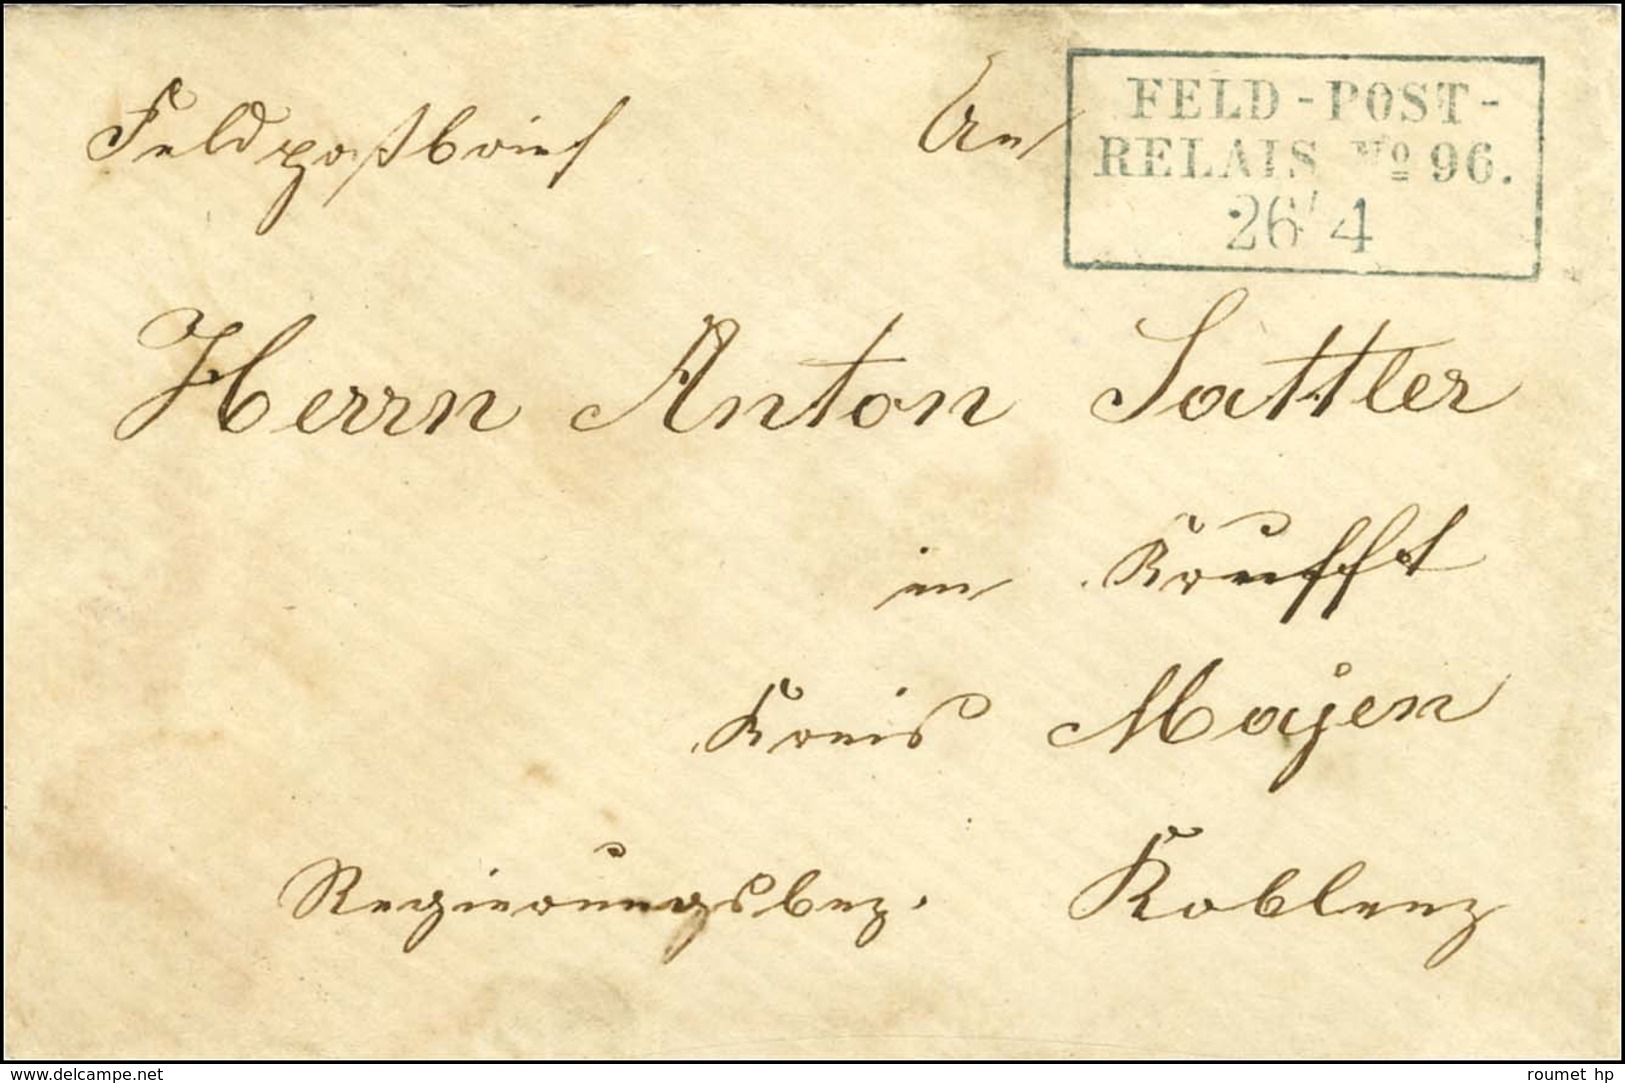 Feldpostbrief An
FELD-POST-
RELAIS No 96.
26/4
Herrn Anton Sattler
in Krufft
Kreis Mayen
Regierungsbez. Koblenz
www.delcampe.net
roumet hp